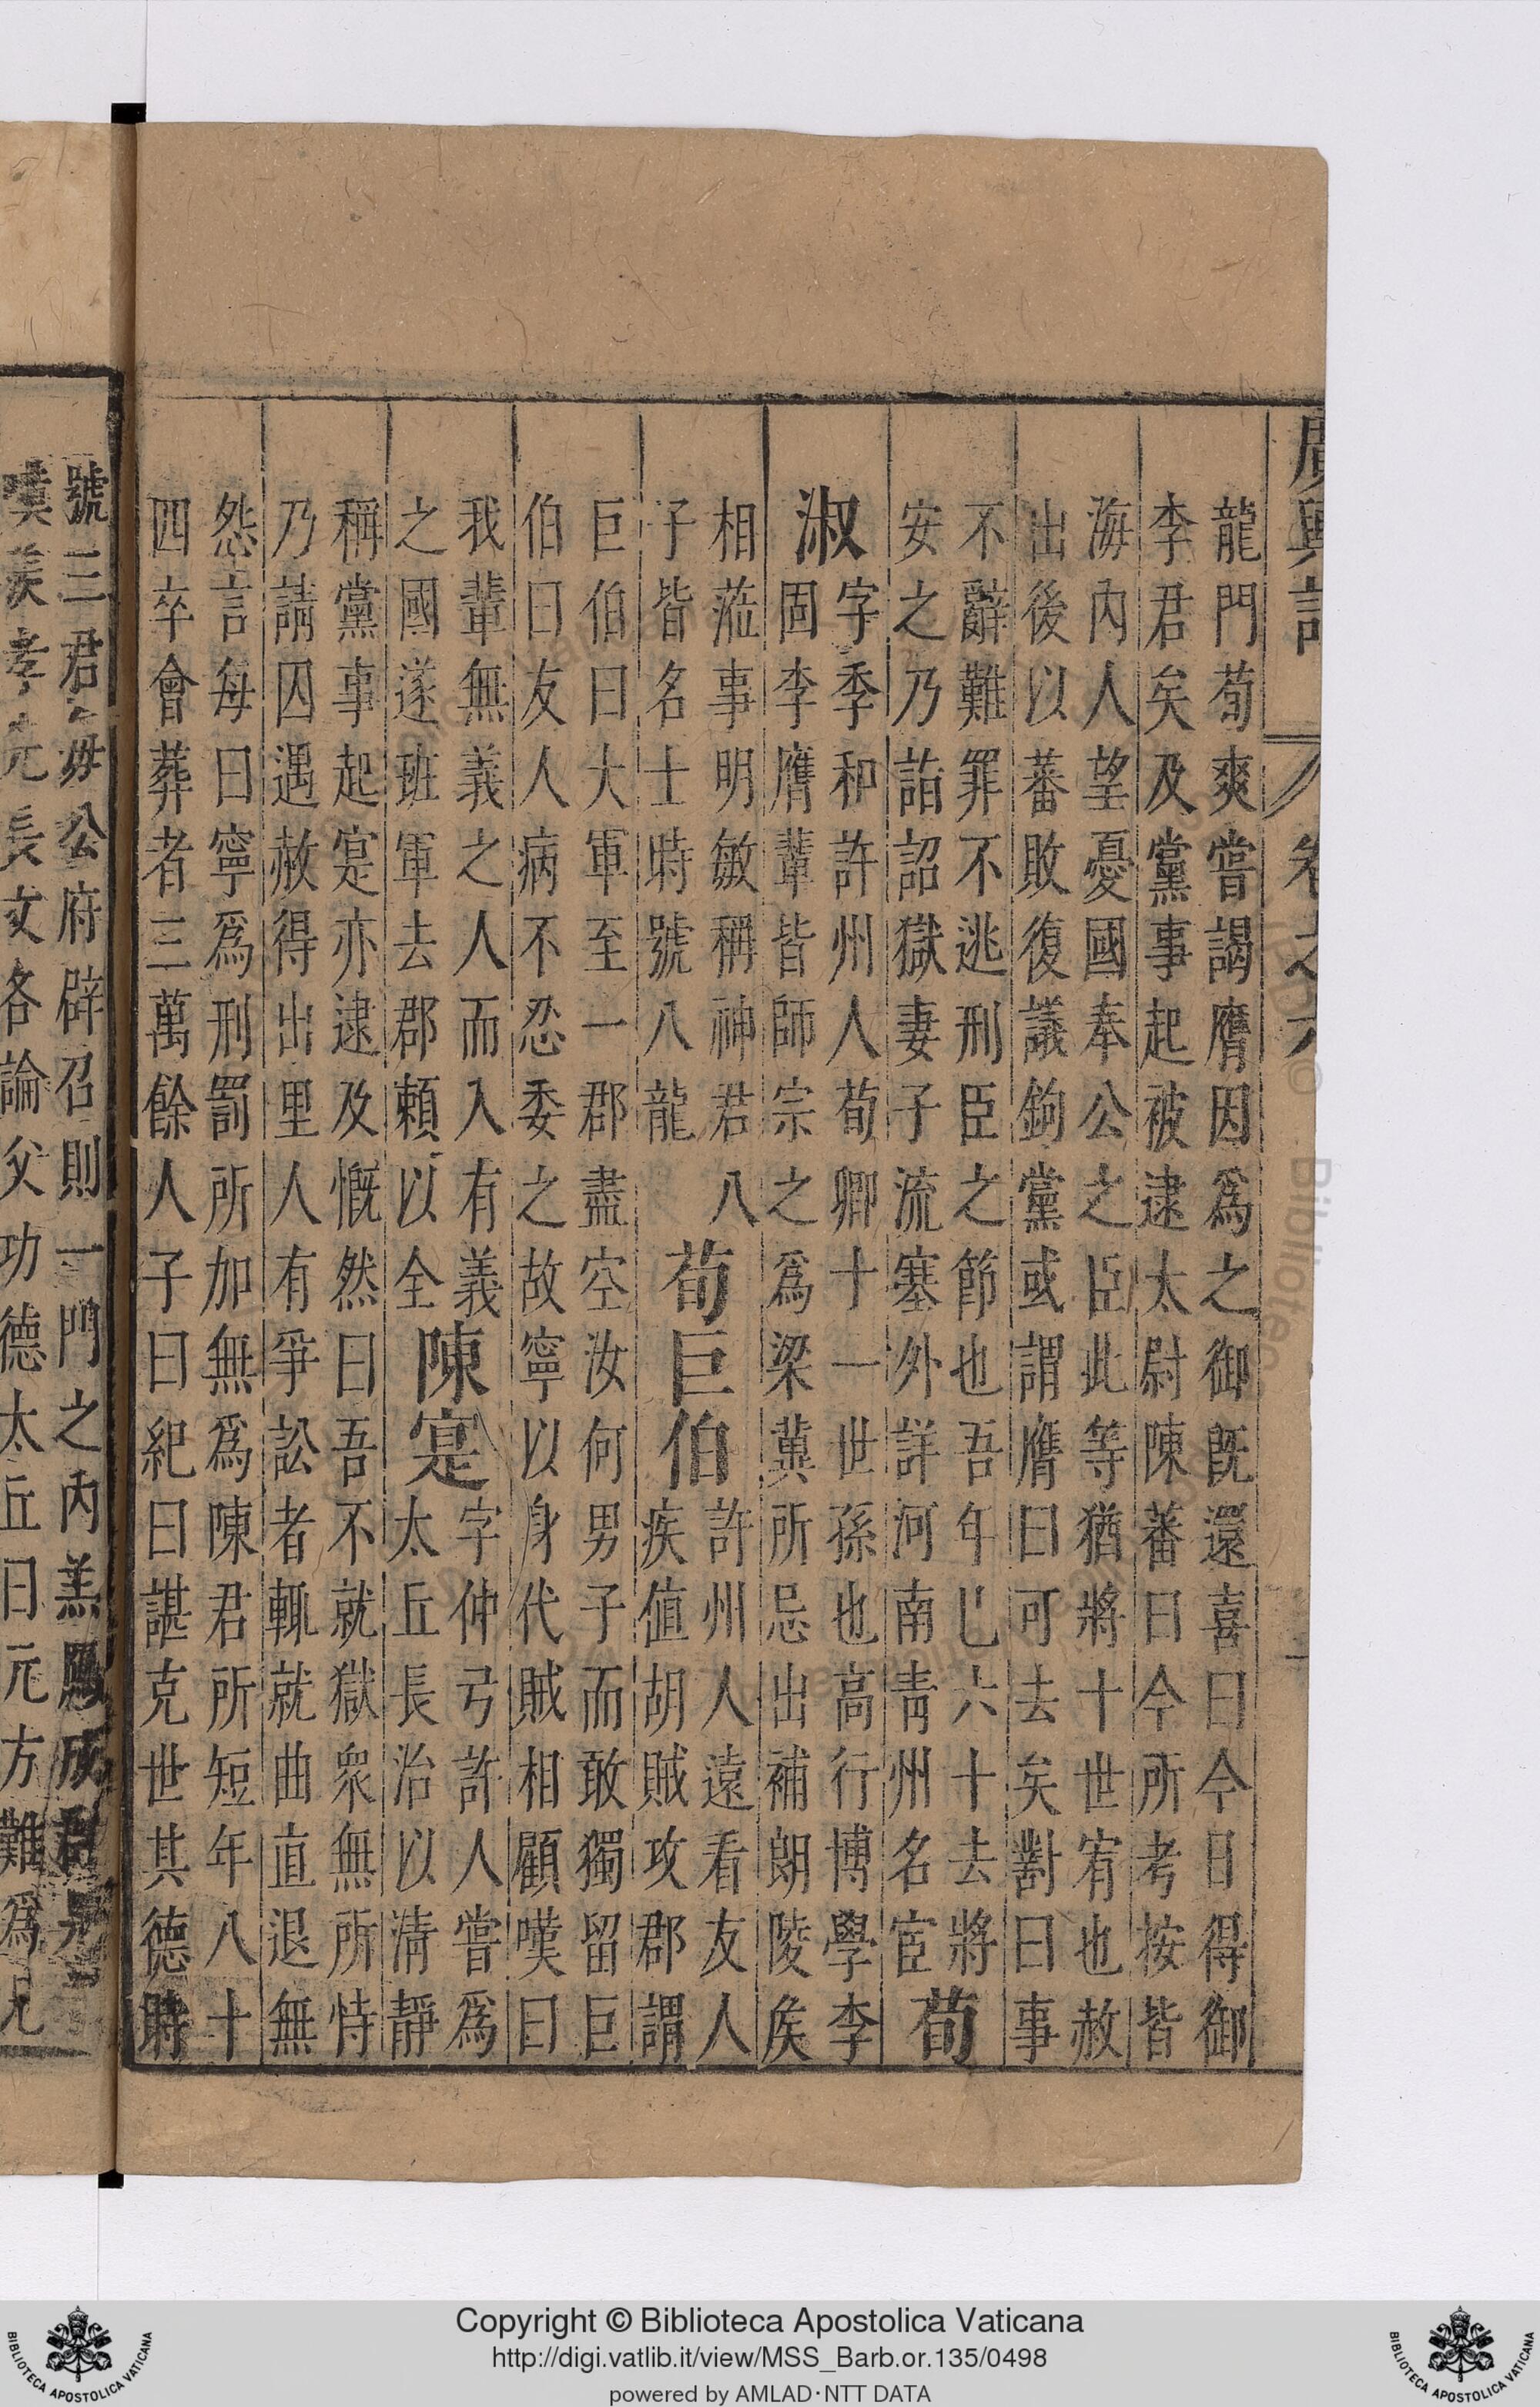 廣輿記 卷之六
龍門荀爽嘗謁膺因爲之御旣還喜曰今日得御
李君矣及黨事起被逮太尉陳蕃曰今所考按皆
海內人望憂國奉公之臣此等猶將十世宥也赦
出後以蕃敗復議鉤黨或謂膺曰可去矣對曰事
不辭難罪不逃刑臣之節也吾年已六十去將
安之乃詣詔獄妻子流塞外詳河南青州名宦
荀
淑
字季和許州人荀卿十一世孫也高行博學李
固李膺輩皆師宗之爲梁冀所忌出補朗陵矦
相蒞事明敏稱神君八
子皆名士時號八龍
荀巨伯
許州人遠看友人
疾值胡賊攻郡謂
巨伯曰大軍至一郡盡空汝何男子而敢獨留巨
伯曰友人病不忍委之故寧以身代賊相顧嘆曰
我輩無義之人而入有義
之國遂班軍去郡賴以全
陳寔
字仲弓許人嘗爲
太丘長治以清靜
稱黨事起寔亦逮及慨然曰吾不就獄衆無所恃
乃請囚遇赦得出里人有爭訟者輒就曲直退無
怨言每曰寧爲刑罰所加無爲陳君所短年八十
四卒會葬者三萬餘人子曰紀曰諶克世其德時
號三君每公府辟召則一門之內羔鴈成羣
嘆羨孝先長文各論父功德太丘曰元方難爲兄
Copyright © Biblioteca Apostolica Vaticana
http://digi.vatlib.it/view/MSS_Barb.or.135/0498
powered by AMLAD·NTT DATA
BIBLIOTECA APOSTOLICA VATICANA
BIBLIOTECA APOSTOLICA VATICANA